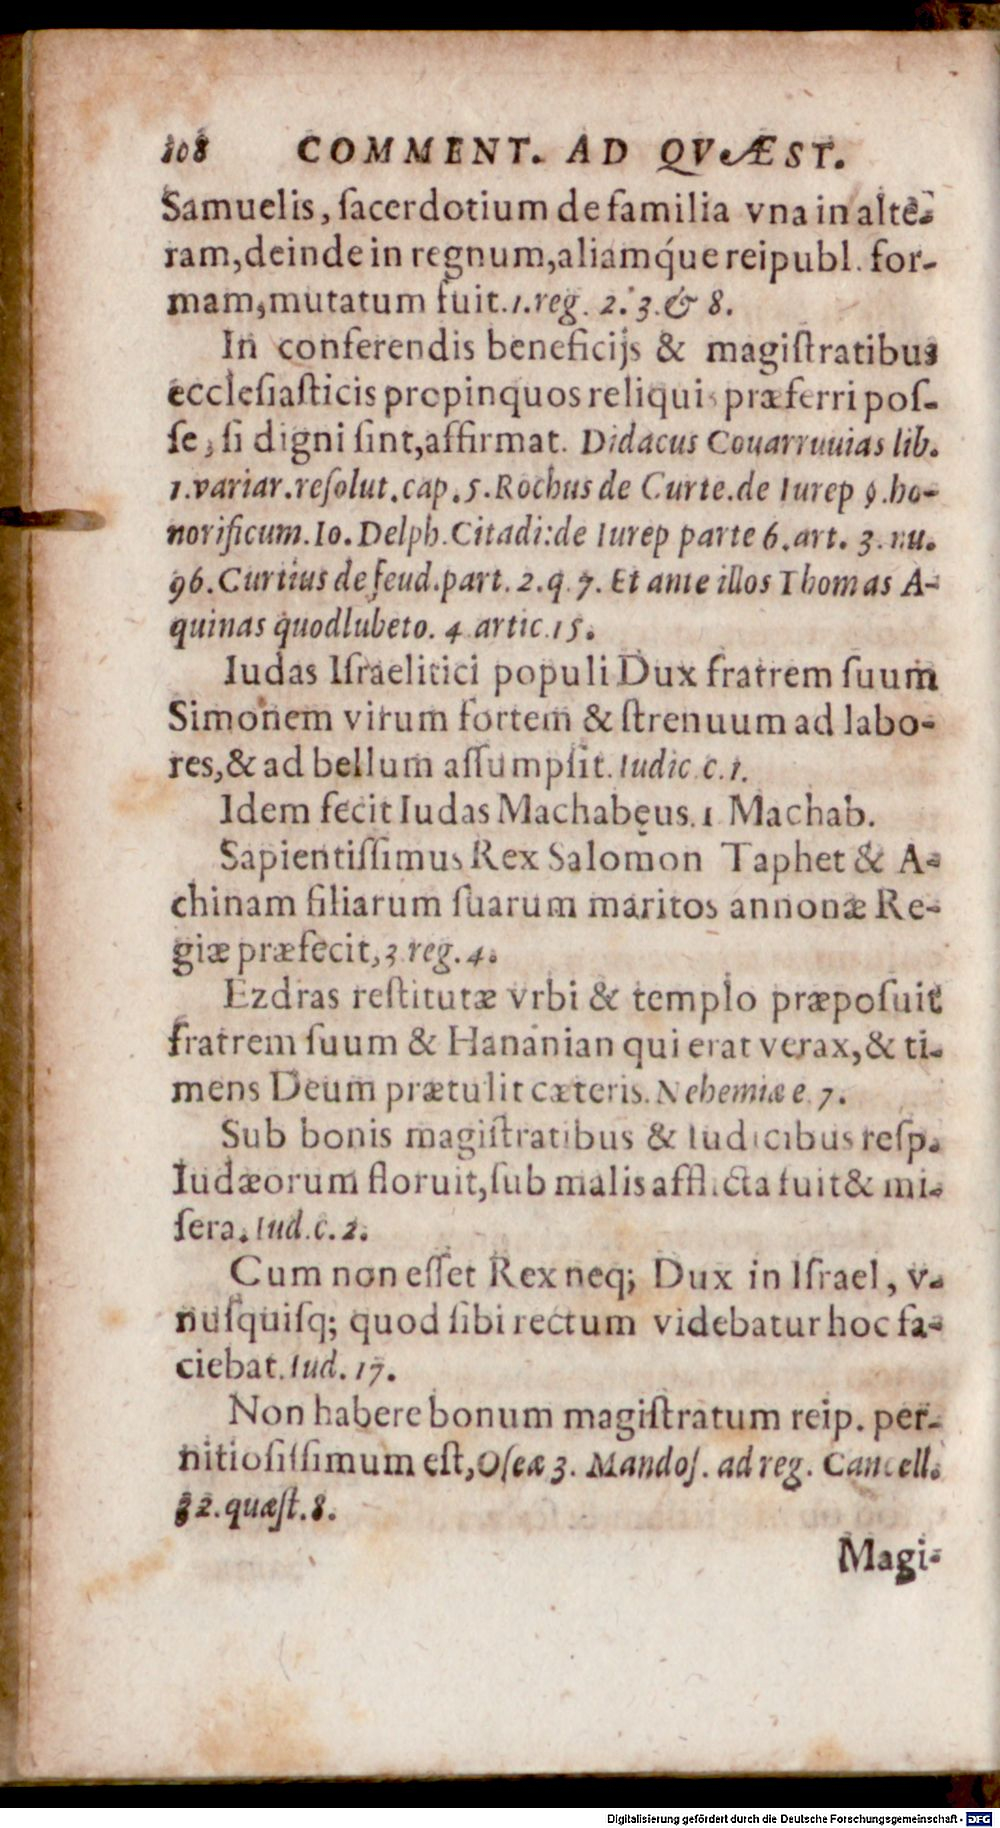 108 COMMENT. AD QVÆST.
Samuelis, ſacerdotium de familia vna in alte-
ram, deinde in regnum, aliamq́ue reipubl. for-
mam, mutatum fuit. 1. reg. 2. 3. & 8.
In conferendis beneficijs & magiſtratibus
eccleſiaſticis propinquos reliquis præferri poſ-
ſe, ſi digni ſint, affirmat. Didacus Couarruuias lib.
1. variar. reſolut. cap. 5. Rochus de Curte. de Iurep §. ho-
norificum. Io. Delph. Citadi: de Iurep parte 6. art. 3. nu.
96. Curtius de feud. part. 2. q. 7. Et ante illos Thomas A-
quinas quodlubeto. 4 artic. 15.
Iudas Iſraelitici populi Dux fratrem ſuum
Simonem virum fortem & ſtrenuum ad labo-
res, & ad bellum aſſumpſit. Iudic c. 1.
Idem fecit Iudas Machabęus. 1 Machab.
Sapientiſſimus Rex Salomon Taphet & A-
chinam filiarum ſuarum maritos annonæ Re-
giæ præfecit, 3 reg. 4.
Ezdras reſtitutæ vrbi & templo præpoſuit
fratrem ſuum & Hananian qui erat verax, & ti-
mens Deum prætulit cæteris. Nehemiæ e. 7.
Sub bonis magiſtratibus & Iudicibus reſp.
Iudæorum floruit, ſub malis afflicta fuit & mi-
ſera. Iud. c. 2.
Cum non eſſet Rex neq; Dux in Iſrael, v-
nuſquiſq; quod ſibi rectum videbatur hoc fa-
ciebat. Iud. 17.
Non habere bonum magiſtratum reip. per-
nitioſiſſimum eſt, Oſeæ 3. Mandoſ. ad reg. Cancell.
32. quæſt. 8.
Magi-
Digitalisierung gefördert durch die Deutsche Forschungsgemeinschaft - DFG